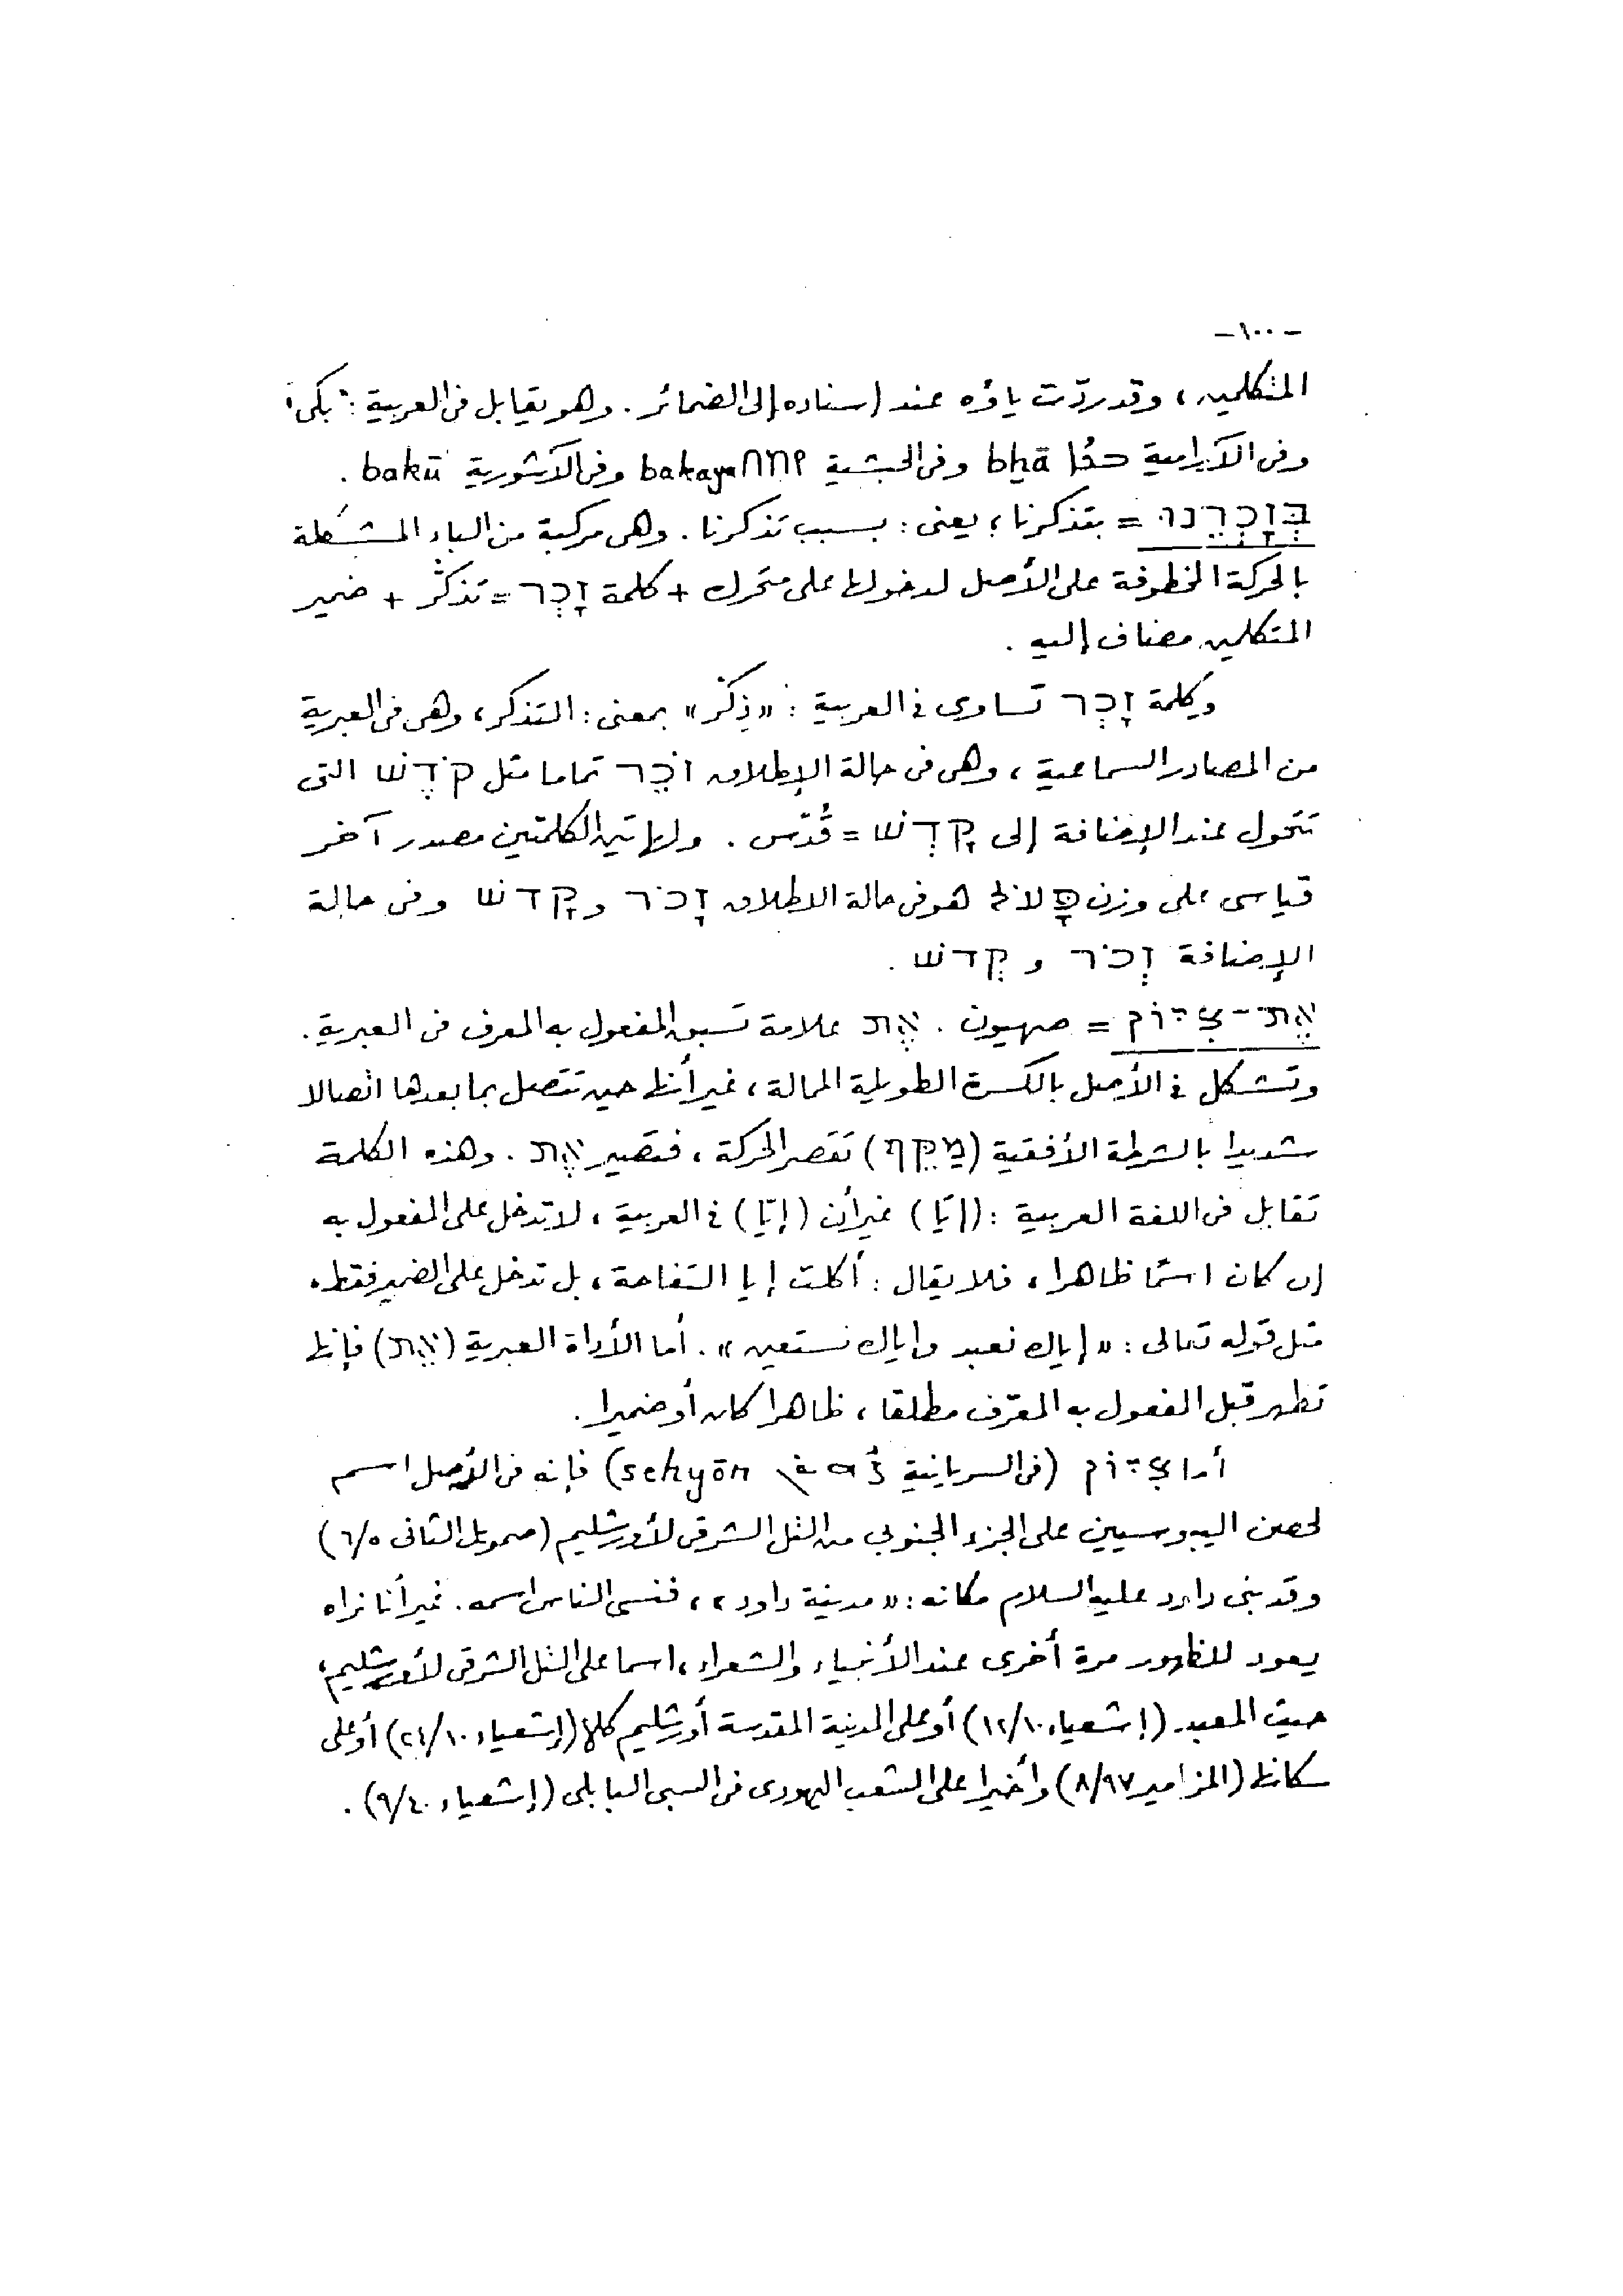 – ١٠٠ –
المتكلمين، وقد ردّت ياؤه عند إسناده إلى الضمائر. وهو يقابل فى العربية: "بكى"
وفى الآرامية ܒܟܐ bḫā وفى الحبشية በከየ bakaya وفى الآشورية bakū .
בְּזָכְרֵנוּ = بتذكرنا؛ يعنى: بسبب تذكرنا. وهى مركبة من الباء المشكَلة
بالحركة المخطوفة على الأصل لدخولها على متحرك + كلمة זָכְר = تذكُّر + ضمير
المتكلمين مضاف إليه .
وكلمة זָכְר تساوى فى العربية : «ذِكْر» بمعنى: التذكر، وهى فى العبرية
من المصادر السماعية، وهى فى حالة الإطلاق זֹכֶר تماما مثل קֹדֶשׁ التى
تتحول عند الإضافة إلى קָדְשׁ = قُدْس . ولهاتين الكلمتين مصدر آخر
قياسى على وزن פָּעֹל هو فى حالة الاطلاق זָכֹר و קָדֹשׁ وفى حالة
الإضافة זְכֹר و קְדֹשׁ .
אֶת־צִיּוֹן = صهيون . אֶת علامة تسبق المفعول به المعرف فى العبرية.
وتشكل فى الأصل بالكسرة الطويلة الممالة، غير أنها حين تتصل بما بعدها اتصالا
شديدا بالشرطة الأفقية (מַקֵּף) تقصر الحركة، فتصير אֶת . وهذه الكلمة
تقابل فى اللغة العربية : (إيّا) غير أن (إيّا) فى العربية، لا تدخل على المفعول به
إن كان اسمًا ظاهرا، فلا يقال : أكلت إيا التفاحة، بل تدخل على الضمير فقط،
مثل قوله تعالى : «إياك نعبد وإياك نستعين» . أما الأداة العبرية (אֶת) فإنها
تظهر قبل المفعول به المعرّف مطلقا، ظاهرا كان أو ضميرا.
أما צִיּוֹן (فى السريانية ܨܗܝܘܢ sehyōn) فإنه فى الأصل اسم
لحصن اليبوسيين على الجزء الجنوبى من التل الشرقى لأورشليم (صمويل الثانى ٦/٥)
وقد بنى داود عليه السلام مكانه: «مدينة داود»، فنسى الناس اسمه. غير أنا نراه
يعود للظهور مرة أخرى عند الأنبياء والشعراء، اسما على التل الشرقى لأورشليم،
حيث المعبد. (إشعياء ١٢/١٠) أو على المدينة المقدسة أورشليم كلها (إشعياء ٢٤/١٠) أو على
سكانها (المزامير ٨/٩٧) وأخيرا على الشعب اليهودى فى السبى البابلى (إشعياء ٩/٤٠) .